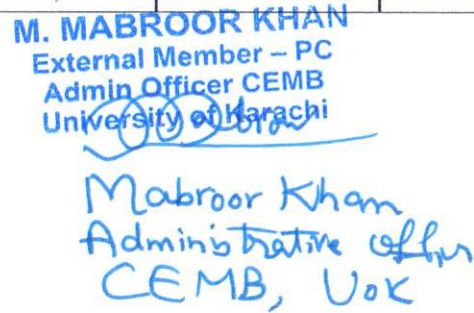 M. MABROOR KHAN
External Member – PC
Admin Officer CEMB
University of Karachi
Mabroor Khan
Administrative Officer
CEMB, UoK